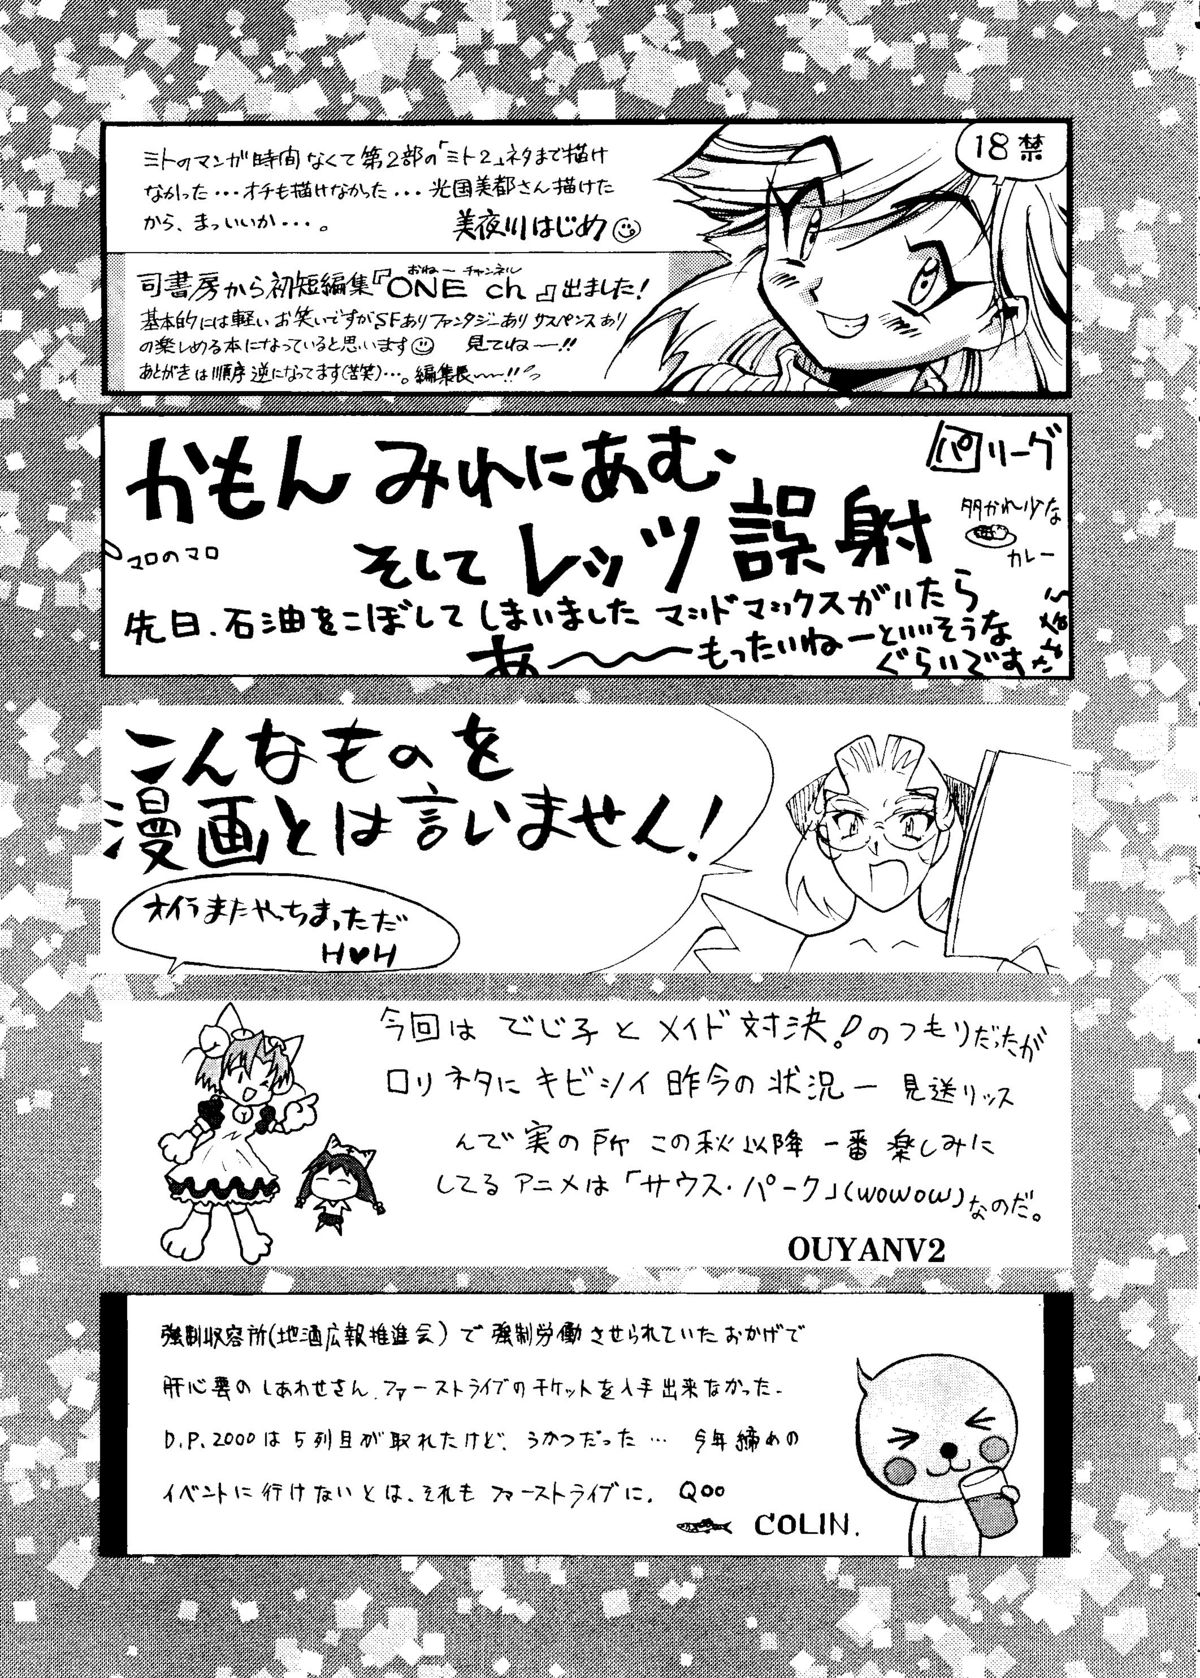 18禁
ミトのマンガ時間なくて第2部の「ミト2」ネタまで描け
なかった・・・オチも描けなかった・・・光国美都さん描けた
から、まっいいか・・・。
美夜川はじめ
司書房から初短編集『ONE ch』出ました!
おねー チャンネル
基本的には軽いお笑いですがSFありファンタジーありサスペンスあり
の楽しめる本になっていると思います 見てねー!!
あとがきは順序逆になってます(苦笑)…。編集長〜〜!!
かもん みれにあむ
パリーグ
そして レッツ 誤射
マロのマロ
多かれ少な
カレー
先日、石油をこぼしてしまいました マッドマックスがいたら
あ〜〜〜もったいねーといいそうな
ぐらいです
こんなものを
漫画とは言いません!
オイラまたやっちまっただ
H♥H
今回は でじ子と メイド 対決!のつもりだったが
ロリネタに キビシイ 昨今の 状況ー 見送リッス
んで 実の所 この秋以降 一番 楽しみに
してる アニメは「サウス・パーク」(WOWOW)なのだ。
OUYANV2
強制収容所(地酒広報推進会)で強制労働させられていたおかげで
肝心要のしあわせさん、ファーストライブのチケットを入手出来なかった。
D.P.2000は5列目が取れたけど、うかつだった… 今年締めの
イベントに行けないとは、それもファーストライブに。 Qoo
COLIN.